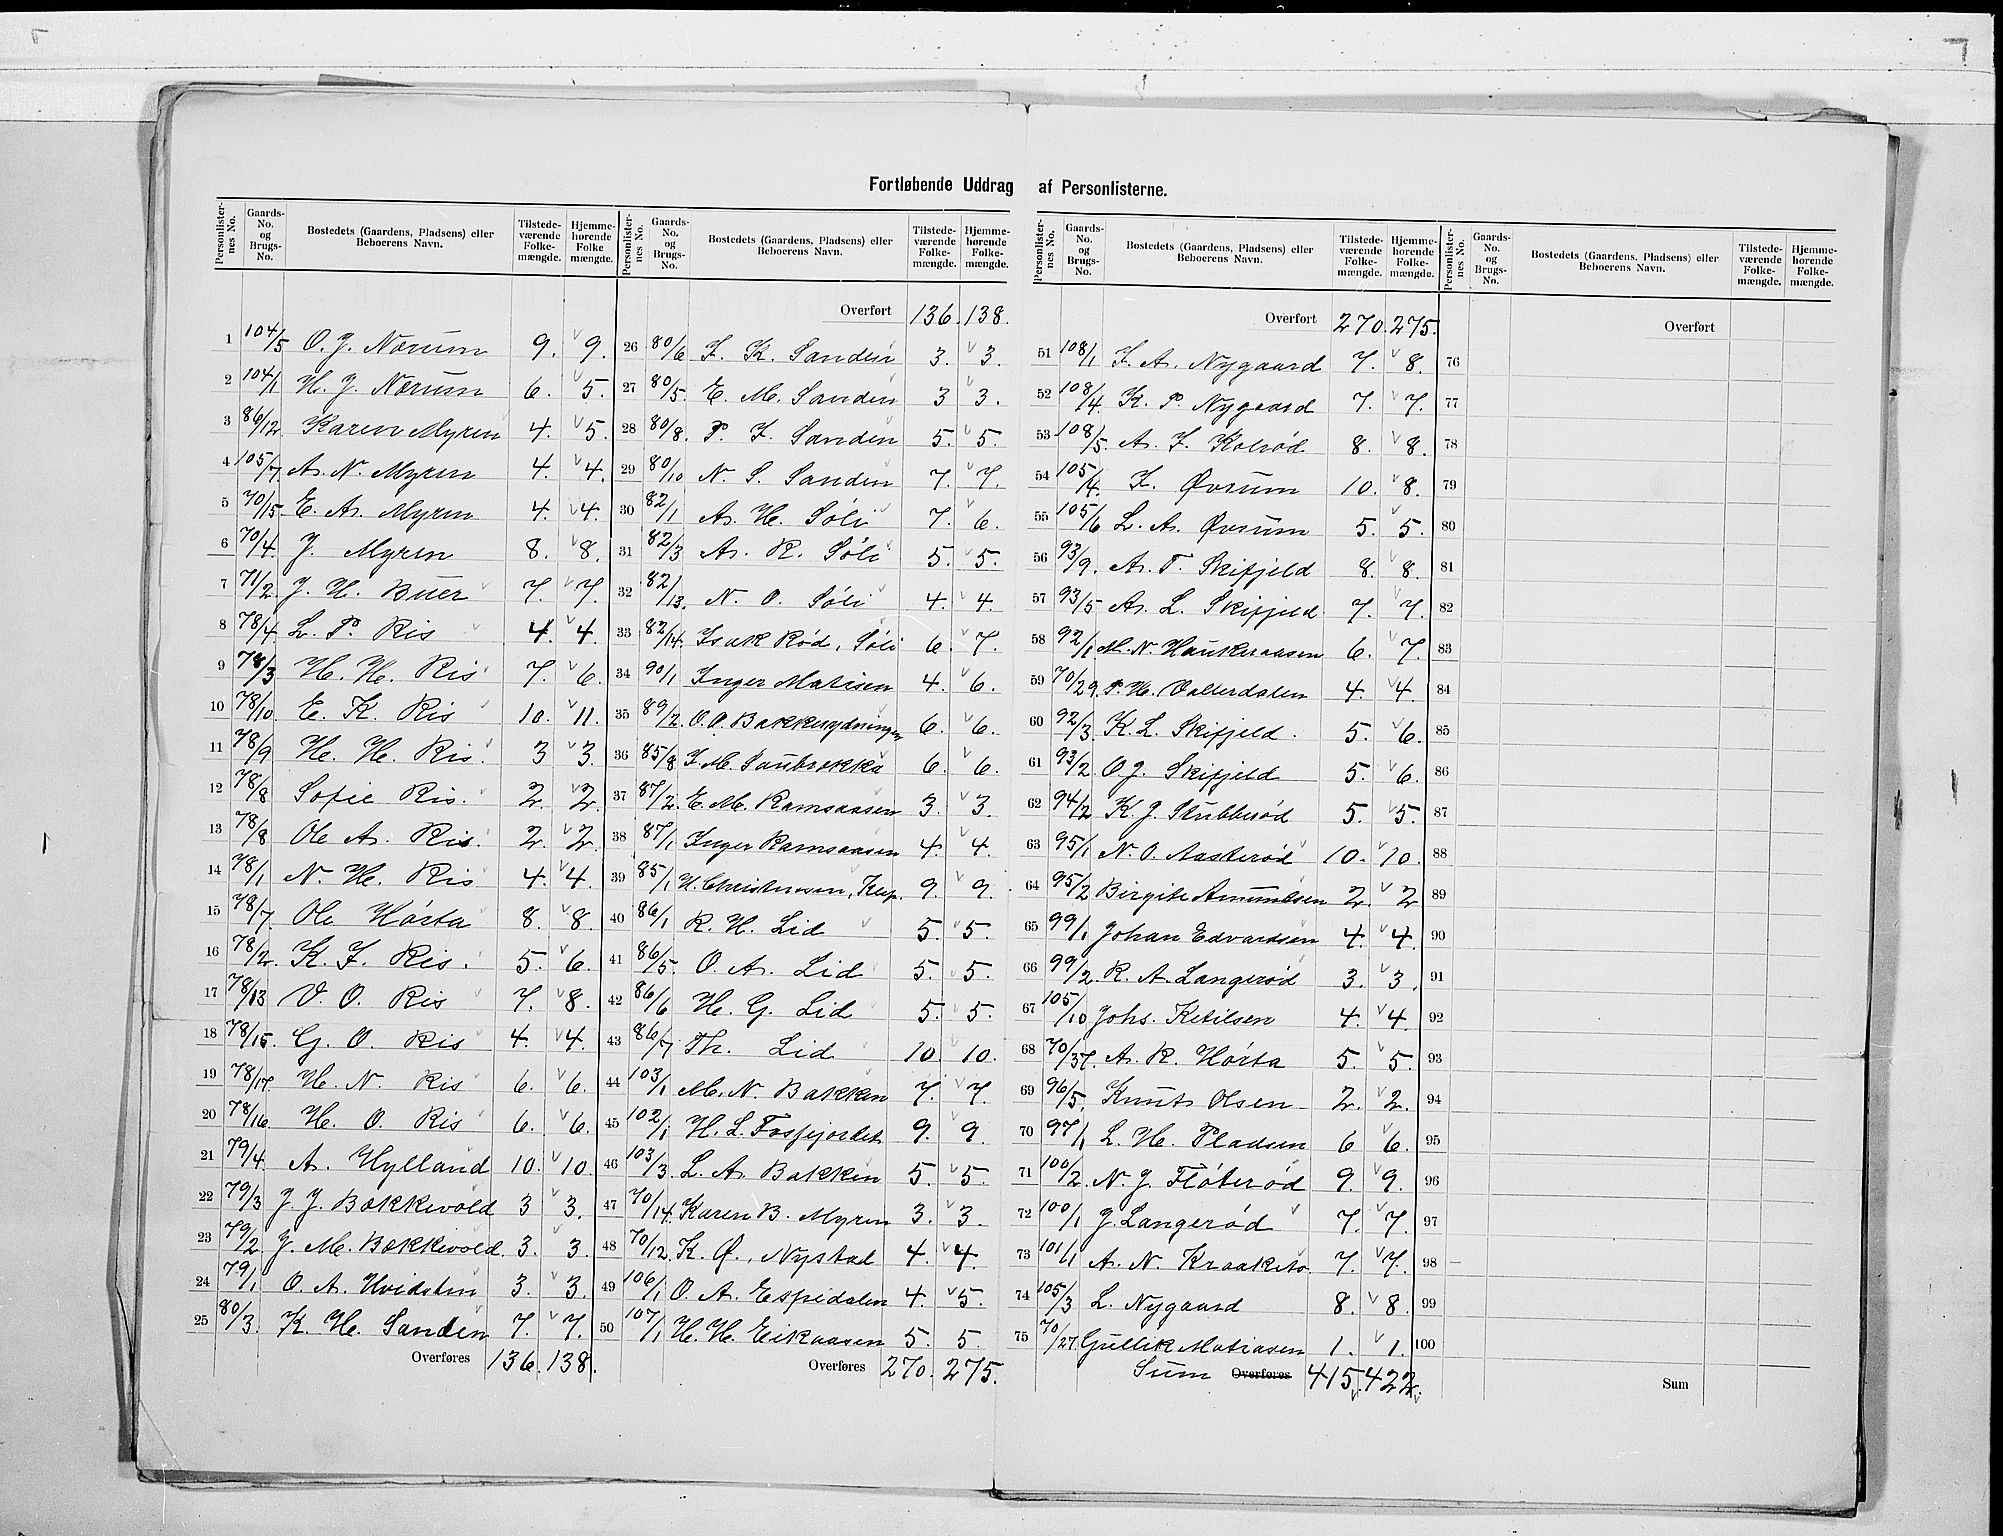 Fortløbende Uddrag af Personlisterne.
Personlister-nes No. Gaards-No. og Brugs-No. Bostedets (Gaardens, Pladsens) eller Beboerens Navn. Tilstede-værende Folke-mængde. Hjemme-hørende Folke mængde.
1 104/5 O. J. Nærum 9. 9.
2 104/1 H. J. Nærum 6. 5.
3 86/12 Karen Myren 4. 5.
4 105/7 A. N. Myren 4. 4.
5 70/15 E. A. Myren 4. 4.
6 70/4 J. Myren 8. 8.
7 71/2 J. H. Buer 7. 7.
8 78/4 L. P. Ris 4. 4.
9 78/3 H. H. Ris 7. 6.
10 78/10 E. K. Ris 10. 11.
11 78/9 H. H. Ris. 3 3.
12 78/8 Sofie Ris. 2. 2.
13 78/8 Ole A. Ris. 2. 2.
14 78/1 N. H. Ris 4. 4.
15 78/7 Ole Hørta 8. 8.
16 78/2 K. I. Ris. 5. 6.
17 78/13 V. O. Ris 7. 8.
18 78/15 G. O. Ris 4. 4.
19 78/17 H. N. Ris 6. 6.
20 78/16 H. O. Ris 6. 6.
21 79/4 A. Hylland 10. 10.
22 79/3 J. J. Bækkevold 3 3.
23 79/2 J. M. Bækkevold. 3. 3.
24 79/1 O. A. Hvidsten 3. 3.
25 80/3 K. H. Sanden 7. 7.
Overføres 136. 138.
Personlister-nes No. Gaards-No. og Brugs-No. Bostedets (Gaardens, Pladsens) eller Beboerens Navn. Tilstede-værende Folke-mængde. Hjemme-hørende Folke-mængde.
Overført 136. 138.
26 80/6 I. K. Sanden 3. 3.
27 80/5 E. M. Sanden 3 3.
28 80/8 P. I. Sanden 5. 5.
29 80/10 N. S. Sanden 7. 7.
30 82/1 A. H. Søli 7. 6.
31 82/3 A. R. Søli 5. 5.
32 82/13 N. O. Søli 4. 4.
33 82/14 Isak Rød, Søli 6. 7.
34 90/1 Inger Matisen 4. 6.
35 89/2 O. O. Bakkerydningen 6. 6.
36 85/8 I. M. Saubrekka 6. 6.
37 87/2 E. M. Ramsaasen 3. 3.
38 87/1 Inger Ramsaasen 4. 4.
39 85/1 H. Christensen, 9. 9.
40 86/1 R. H. Lid 5. 5.
41 86/5 O. A. Lid 5. 5.
42 86/6 H. G. Lid 5. 5.
43 86/7 Th. Lid 10. 10.
44 103/1 M. N. Bakken 7. 7.
45 102/1 H. L. Fosfjordet 9. 9.
46 103/3 L. A. Bakken 5. 5.
47 70/14 Karen B. Myren 3. 3.
48 70/12 K. O. Nystad 4. 4.
49 106/1 O. A. Espedalen 4. 5.
50 107/1 H. H. Eikaasen 5. 5.
Overføres 270. 275.
Personlister-nes No. Gaards-No. og Brugs-No. Bostedets (Gaardens, Pladsens) eller Beboerens Navn. Tilstede-værende Folke-mængde. Hjemme-hørende Folke-mængde.
Overført 270. 275.
51 108/1 I. A. Nygaard 7. 8.
52 108/4 K. P. Nygaard 7. 7.
53 108/5 A. I. Kolrød 8. 8.
54 105/4 I. Øvrum 10. 8.
55 105/6 L. A. Øvrum 5. 5.
56 93/9 A. T. Skifjeld 8. 8.
57 93/5 A. L. Skifjeld 7. 7.
58 92/1 M. N. Haukeraasen 6. 7.
59 70/29 P. H. Valterdalen 4. 4
60 92/3 K. L. Skifjeld. 5. 6.
61 93/2 O J. Skifjeld 5. 6.
62 94/2 K. J. Stubberød 5. 5.
63 95/1 N. O. Aasterød 10. 10.
64 95/2 Birgite Amundsen 2. 2
65 99/1 Johan Edvardsen 4. 4.
66 99/2 R. A. Langerød 3. 3.
67 105/10 Johs. Ketilsen 4. 4.
68 70/37 A. R. Hørta 5. 5.
69 96/5 Knut Olsen 2. 2.
70 97/1 L. H. Pladsen 6 6.
71 100/2 N. J. Fløterød 9. 9.
72 100/1 J. Langerød 7. 7.
73 101/1 A. N. Kraaketo. 7. 7.
74 105/3 L. Nygaard 8. 8.
75 70/27 Gullik Matiasen 1. 1.
Sum Overføres 415. 422.
Personlister-nes No. Gaards-No. og Brugs-No. Bostedets (Gaardens, Pladsens) eller Beboerens Navn. Tilstede-værende Folke-mængde. Hjemme-hørende Folke-mængde.
Overført
76
77
78
79
80
81
82
83
84
85
86
87
88
89
90
91
92
93
94
95
96
97
98
99
100
Sum